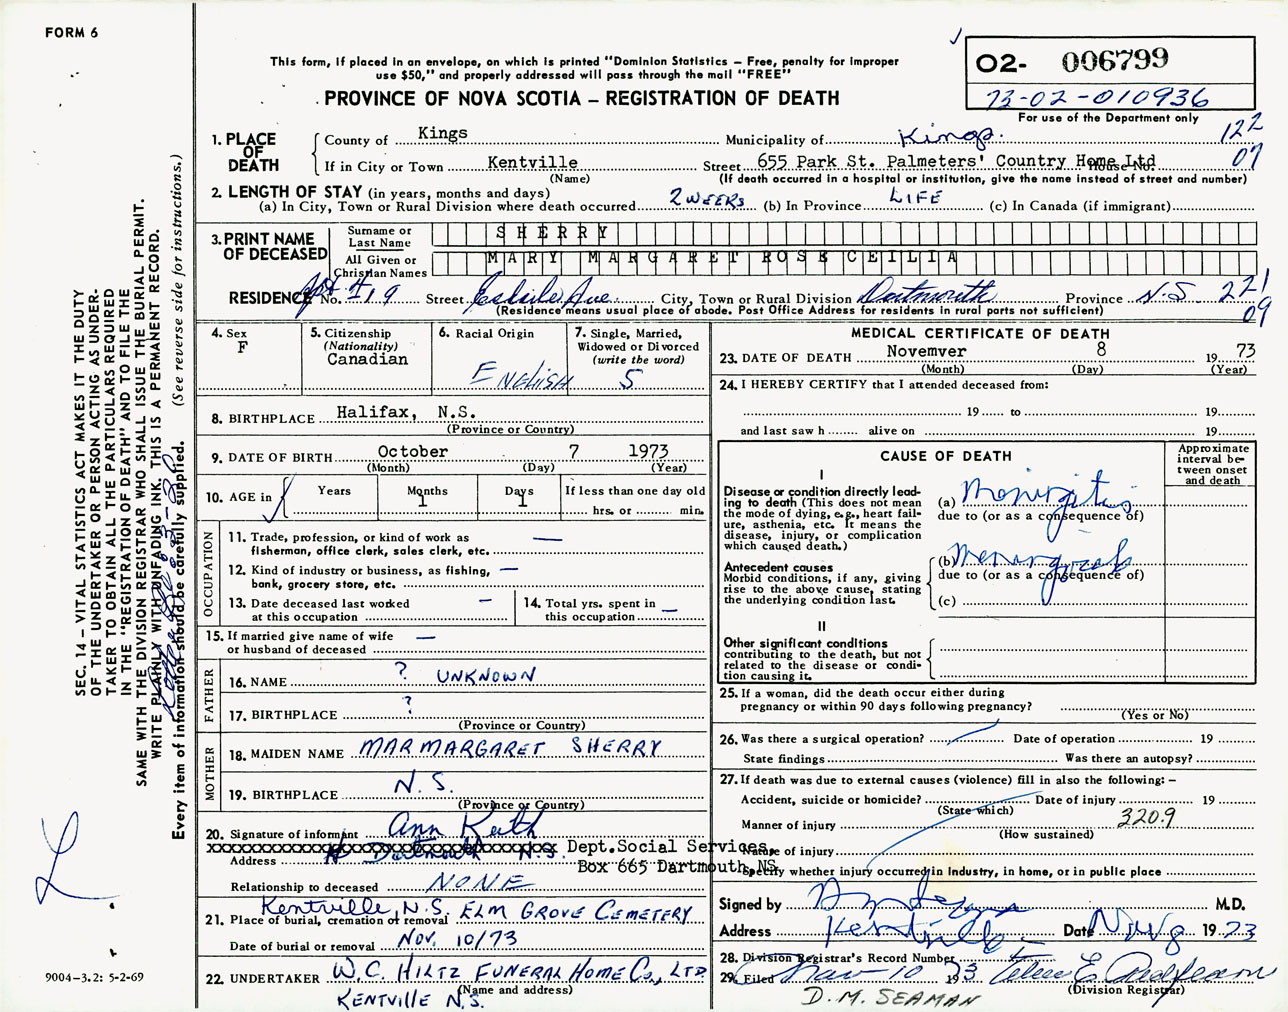 FORM 6
This form, if placed in an envelope, on which is printed "Dominion Statistics – Free, penalty for improper
use $50," and properly addressed will pass through the mail "FREE"
PROVINCE OF NOVA SCOTIA – REGISTRATION OF DEATH
O2- 006799
73-02-010936
For use of the Department only
122
07
1. PLACE OF DEATH
County of Kings Municipality of Kings.
If in City or Town Kentville Street 655 Park St. Palmeters' Country Home Ltd House No.
(Name) (If death occurred in a hospital or institution, give the name instead of street and number)
2. LENGTH OF STAY (in years, months and days)
(a) In City, Town or Rural Division where death occurred 2 WEEKS (b) In Province LIFE (c) In Canada (if immigrant)
3. PRINT NAME OF DECEASED
Surname or Last Name SHERRY
All Given or Christian Names MARY MARGARET ROSE CEILIA
RESIDENCE No. Apt # 19 Street Ave City, Town or Rural Division Dartmouth Province N.S 221
09
(Residence means usual place of abode. Post Office Address for residents in rural parts not sufficient)
4. Sex
F
5. Citizenship
(Nationality)
Canadian
6. Racial Origin
ENGLISH
7. Single, Married,
Widowed or Divorced
(write the word)
S
8. BIRTHPLACE Halifax, N.S.
(Province or Country)
9. DATE OF BIRTH October 7 1973
(Month) (Day) (Year)
10. AGE in
Years Months Days If less than one day old
1 1 hrs. or min.
OCCUPATION
11. Trade, profession, or kind of work as
fisherman, office clerk, sales clerk, etc. —
12. Kind of industry or business, as fishing,
bank, grocery store, etc. —
13. Date deceased last worked
at this occupation —
14. Total yrs. spent in
this occupation —
15. If married give name of wife
or husband of deceased —
FATHER
16. NAME ? UNKNOWN
17. BIRTHPLACE ?
(Province or Country)
MOTHER
18. MAIDEN NAME MARMARGARET SHERRY
19. BIRTHPLACE N.S.
(Province or Country)
20. Signature of informant Ann Keith
xxxxxxxxxxxxxxxxxxxxxxxxxxxxxxxx Dept.Social Services,
Address Dartmouth N.S. Box 665 Dartmouth,NS
Relationship to deceased NONE
Kentville, N.S. ELM GROVE CEMETERY
21. Place of burial, cremation or removal
Date of burial or removal Nov. 10/73
22. UNDERTAKER W.C. HILTZ FUNERAL HOME Co., LTD
(Name and address)
KENTVILLE N.S.
MEDICAL CERTIFICATE OF DEATH
23. DATE OF DEATH Novemver 8 19 73
(Month) (Day) (Year)
24. I HEREBY CERTIFY that I attended deceased from:
19 to 19
and last saw h alive on 19
CAUSE OF DEATH
Approximate
interval be-
tween onset
and death
I
Disease or condition directly lead-
ing to death (This does not
mean the mode of dying, e.g., heart fail-
ure, asthenia, etc. It means the
disease, injury, or complication
which caused death.)
(a) Meningitis
due to (or as a consequence of)
Antecedent causes
Morbid conditions, if any, giving
rise to the above cause, stating
the underlying condition last.
(b)
due to (or as a consequence of)
(c)
II
Other significant conditions
contributing to the death, but not
related to the disease or condi-
tion causing it.
25. If a woman, did the death occur either during
pregnancy or within 90 days following pregnancy?
(Yes or No)
26. Was there a surgical operation? Date of operation 19
State findings Was there an autopsy?
27. If death was due to external causes (violence) fill in also the following: –
Accident, suicide or homicide? Date of injury 19
(State which)
Manner of injury 3209
(How sustained)
Nature of injury
Specify whether injury occurred in Industry, in home, or in public place
Signed by M.D.
Address Kentville Date Nov 9 19 73
28. Division Registrar's Record Number
29. Filed Nov 10 1973
(Division Registrar)
D. M. SEAMAN
SEC. 14 – VITAL STATISTICS ACT MAKES IT THE DUTY
OF THE UNDERTAKER OR PERSON ACTING AS UNDER-
TAKER TO OBTAIN ALL THE PARTICULARS REQUIRED
IN THE "REGISTRATION OF DEATH" AND TO FILE THE
SAME WITH THE DIVISION REGISTRAR WHO SHALL ISSUE THE BURIAL PERMIT.
WRITE PLAINLY WITH UNFADING INK. THIS IS A PERMANENT RECORD.
Every item of information should be carefully supplied. (See reverse side for instructions.)
9004-3.2: 5-2-69